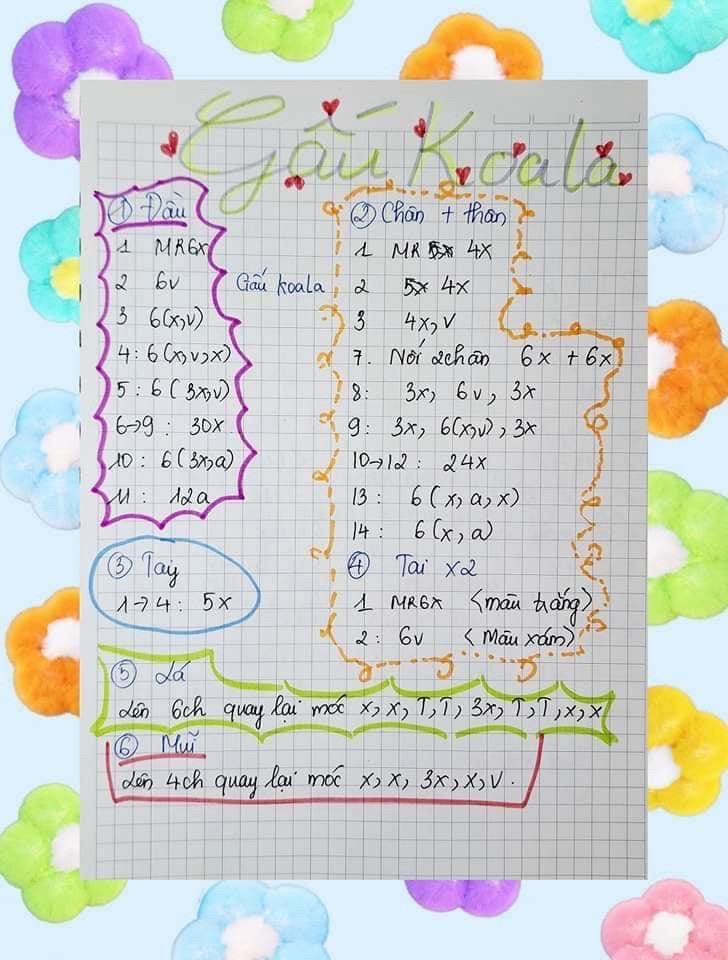 Gấu Koala
① Đầu
1 MR6X
2 6v
3 6(x,v)
4: 6(x,v,x)
5: 6(3x,v)
6→9: 30x
10: 6(3x,a)
11: 12a
Gấu koala
② Chân + thân
1 MR 5x 4x
2 5x 4x
3 4x,v
7. Nối 2chân 6x + 6x
8: 3x, 6v, 3x
9: 3x, 6(x,v), 3x
10→12: 24x
13: 6(x,a,x)
14: 6(x,a)
③ Tay
1→4: 5x
④ Tai x2
1 MR6X <màu trắng>
2: 6v <Màu xám>
⑤ Lá
Lên 6ch quay lại móc x,x,T,T, 3x,T,T,x,x
⑥ Mũi
Lên 4ch quay lại móc x,x, 3x,x,v.